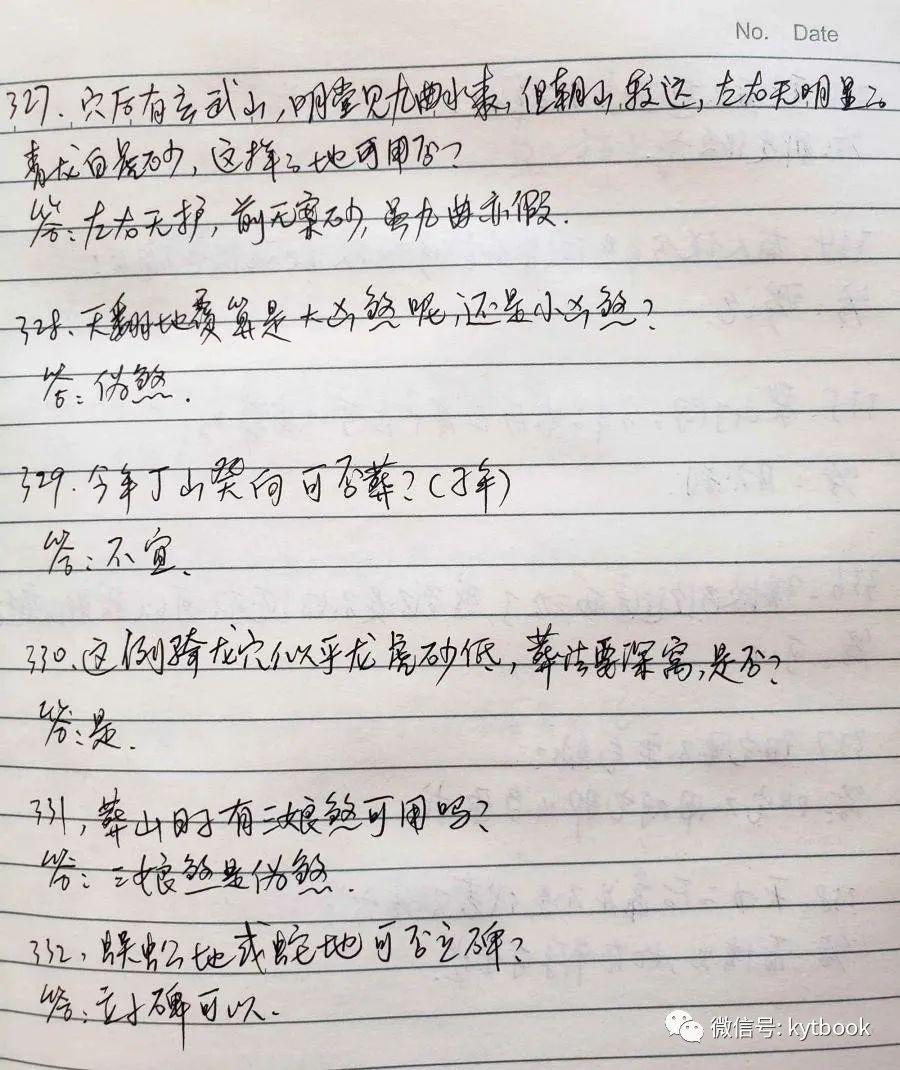 No. Date
327、穴后有玄武山,明堂见九曲水来,但朝山较远,左右无明显之
青龙白虎砂,这样之地可用否?
答:左右无护,前无案砂,虽九曲亦假.
328、天翻地覆算是大凶煞呢,还是小凶煞?
答:伪煞.
329.今年丁山癸向可否葬?(子年)
答:不宜.
330、这例骑龙穴似乎龙虎砂低,葬法要深窝,是否?
答:是.
331,葬山日子有三娘煞可用吗?
答:三娘煞是伪煞.
332、蜈蚣地或蛇地可否立碑?
答:立小碑可以.
微信号: kytbook